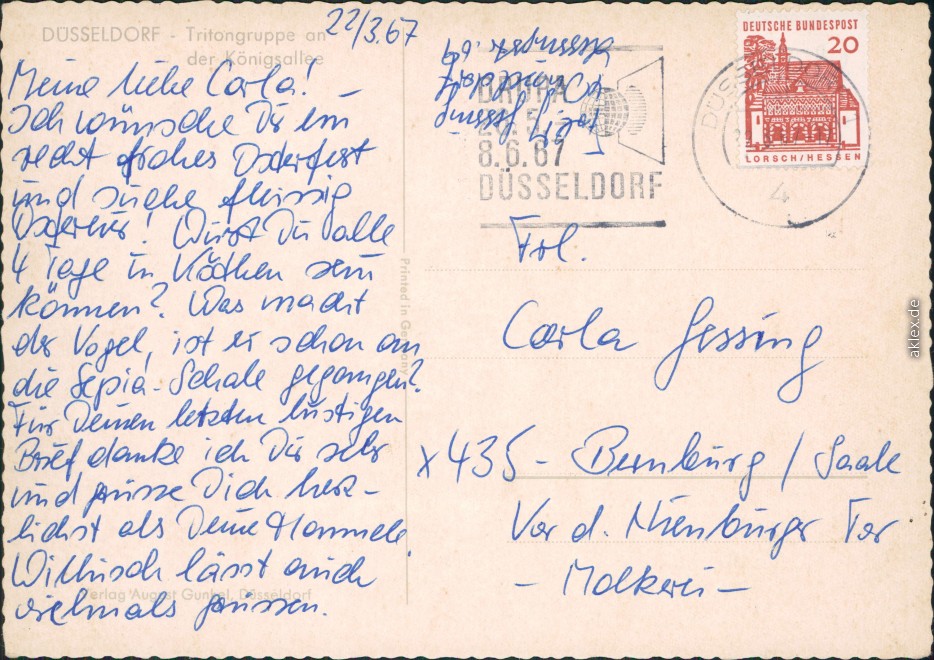 DÜSSELDORF - Tritongruppe an
der Königsallee
22/3.67
Meine liebe Carla! –
Ich wünsche Dir ein
recht frohes Osterfest
und suche fleissig
Ostereier! Wirst Du alle
4 Tage in Köthen sein
können? Was macht
der Vogel, ist er schon an
die Sepia-Schale gegangen?
Für Deinen letzten lustigen
Brief danke ich Dir sehr
und grüsse Dich herz-
lichst als Deine Hannele
Willusch lässt auch
vielmals grüssen.
Verlag August Gunkel, Düsseldorf
Printed in Germany
DRUPA
8.6.67
DÜSSELDORF
DEUTSCHE BUNDESPOST
20
LORSCH/HESSEN
DÜSSELDORF
4
Frl.
Carla Gessing
X435 - Bernburg / Saale
Vor d. Nienburger Tor
- Molkerei -
aklex.de